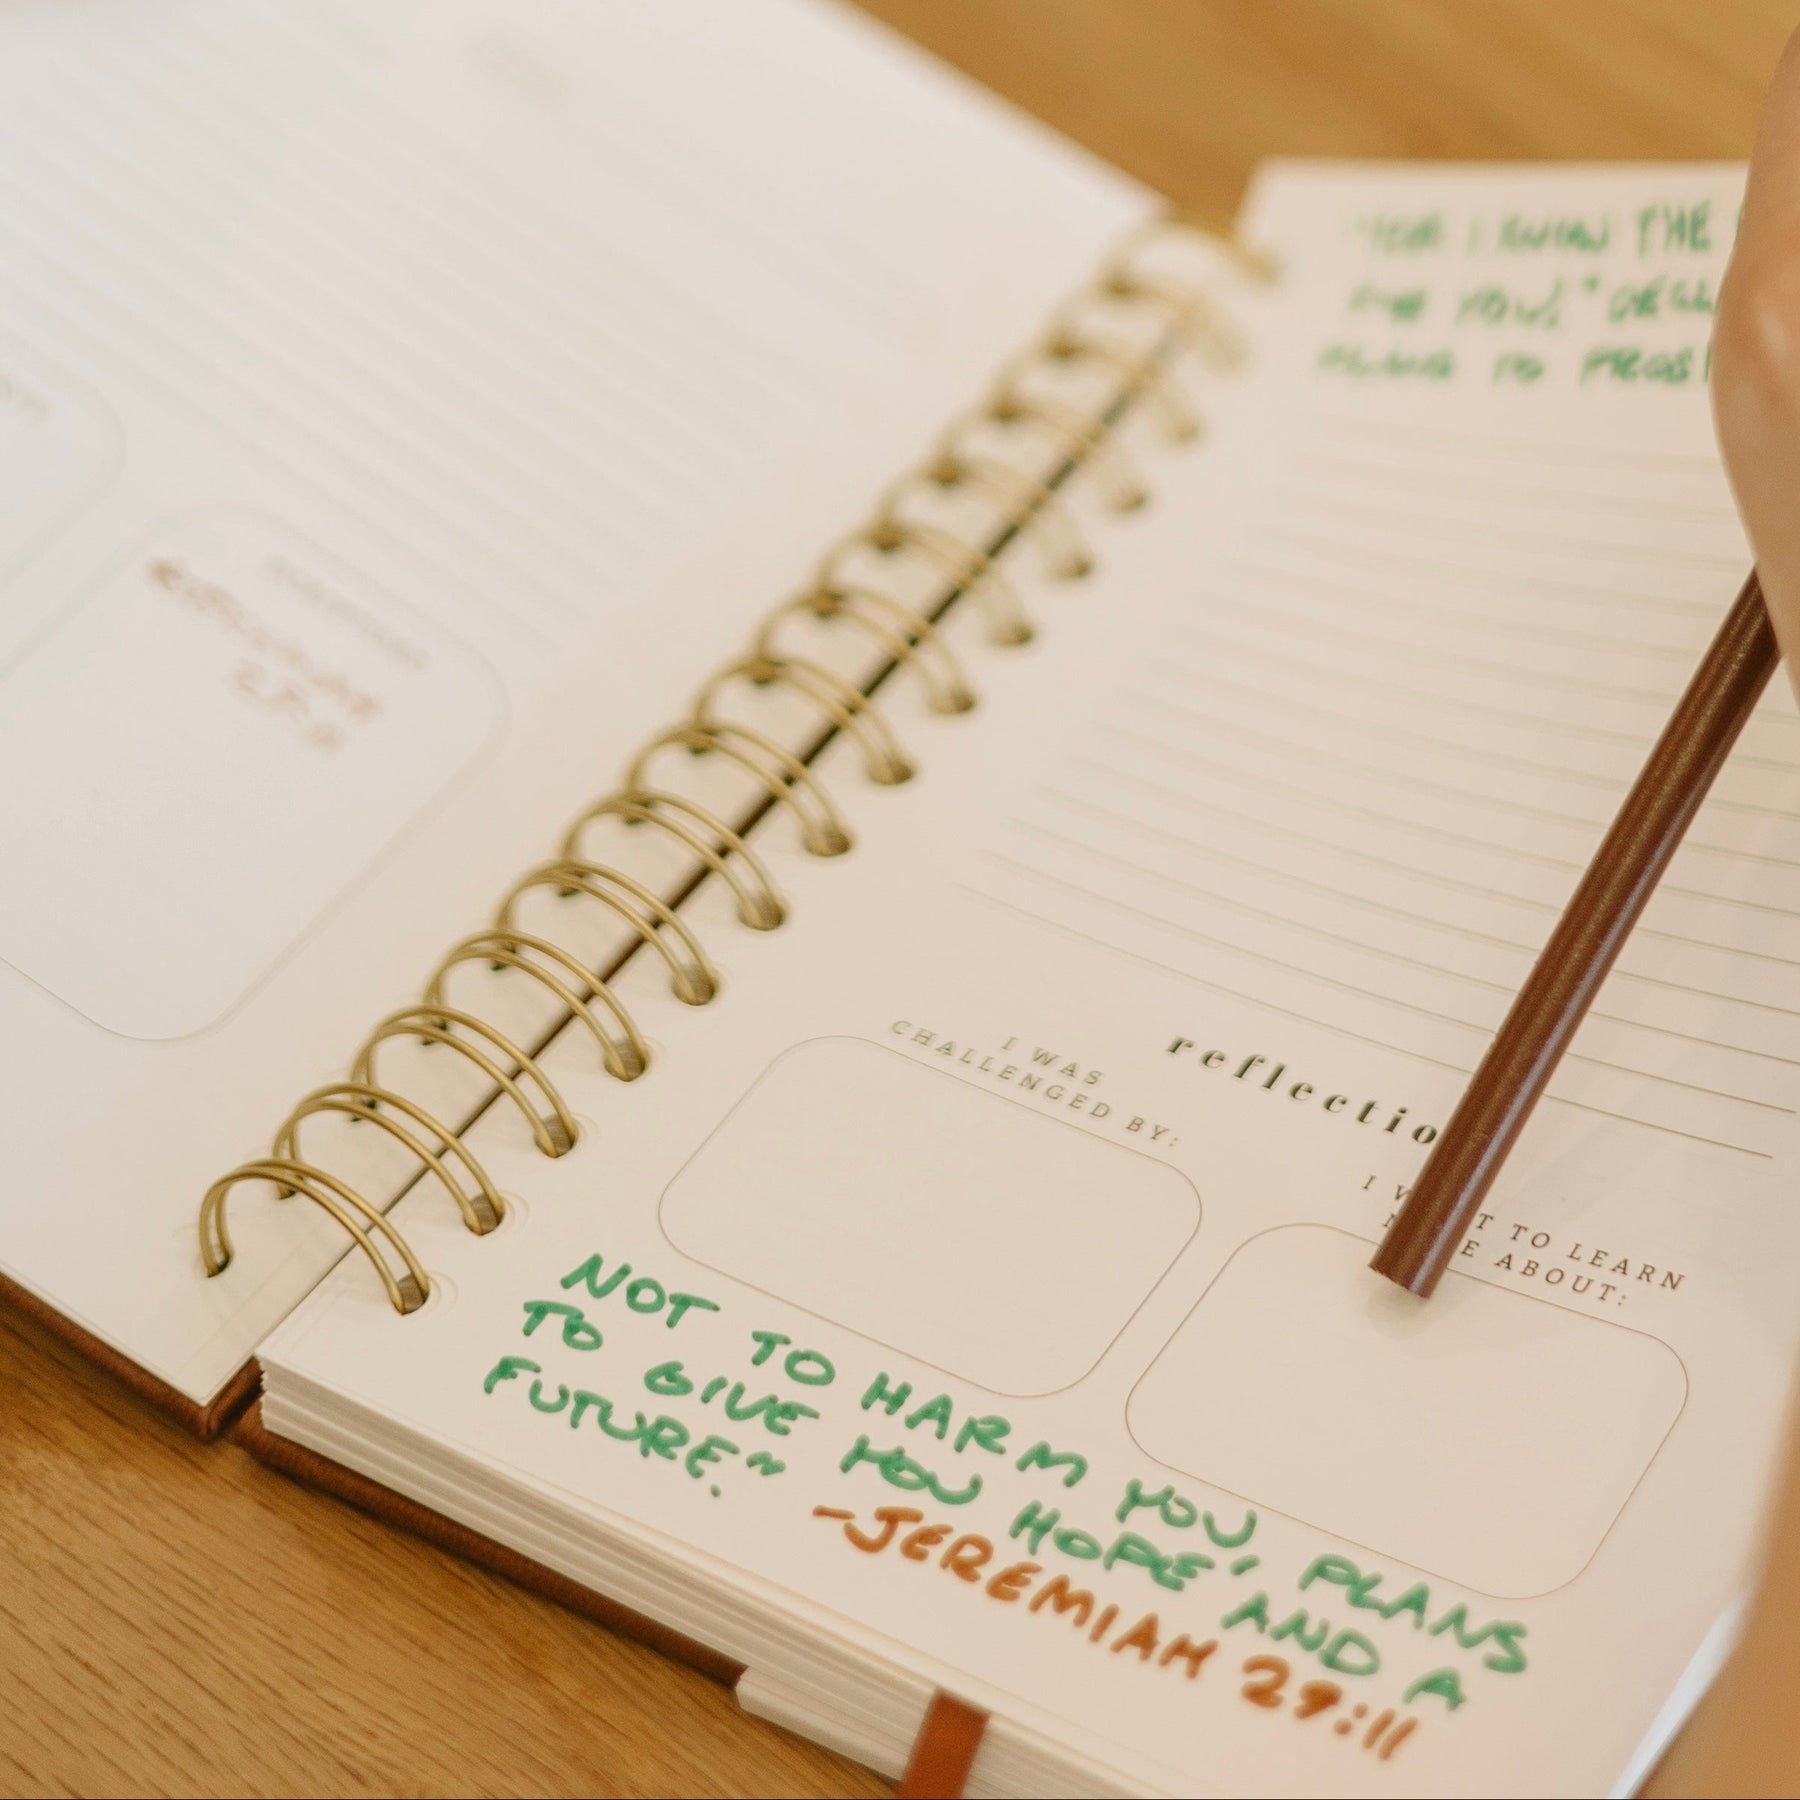 "FOR I KNOW THE
YOU," DECL
PLANS TO PROS
reflectio
I WAS
CHALLENGED BY:
I W T TO LEARN
E ABOUT:
NOT TO HARM YOU, PLANS
TO GIVE YOU HOPE, AND A
FUTURE."
-JEREMIAH 29:11